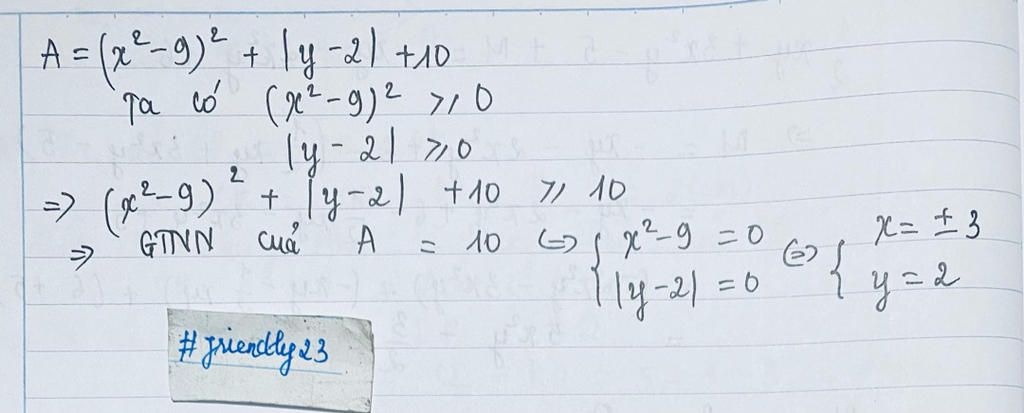 A = (x² - 9)² + |y - 2| + 10
Ta có (x² - 9)² ⩾ 0
|y - 2| ⩾ 0
=> (x² - 9)² + |y - 2| + 10 ⩾ 10
=> GTNN của A = 10 <=> { x² - 9 = 0 <=> { x = ± 3
|y - 2| = 0 y = 2
#friendly23